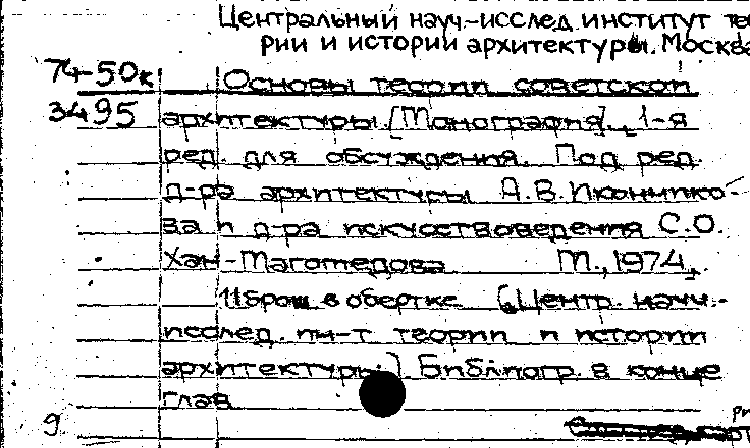 Центральный науч.-исслед. институт тео
рии и истории архитектуры. Москва
74-50к Основы теории советской
3495 архитектуры. [Монография]., 1-я
ред. для обсуждения. Под ред.
д-ра архитектуры А.В. Иконнико-
ва и д-ра искусствоведения С.О.
Хан-Магомедова М., 1974.
11 брош. в обертке (Центр. науч.-
исслед. ин-т теории и истории
архитектуры) Библиогр. в конце
глав
9